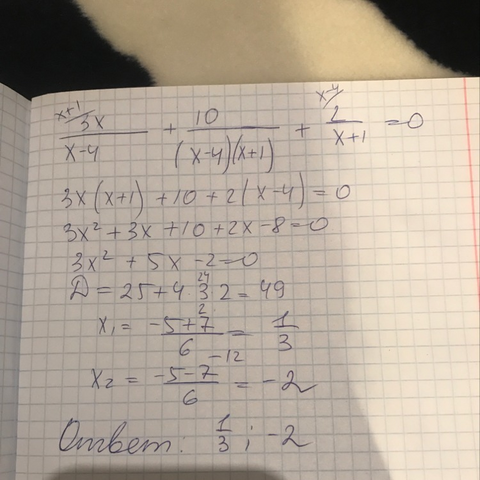 x+1/ 3x / x-4 + 10 / (x-4)(x+1) + x-4/ 2 / x+1 = 0
3x(x+1) + 10 + 2(x-4) = 0
3x² + 3x + 10 + 2x - 8 = 0
3x² + 5x - 2 = 0
D = 25 + 4 · 3 · 2 = 49
24
x₁ = -5+7 / 6 = 1/3
2
x₂ = -5-7 / 6 = -2
-12
Ответ: 1/3 ; -2